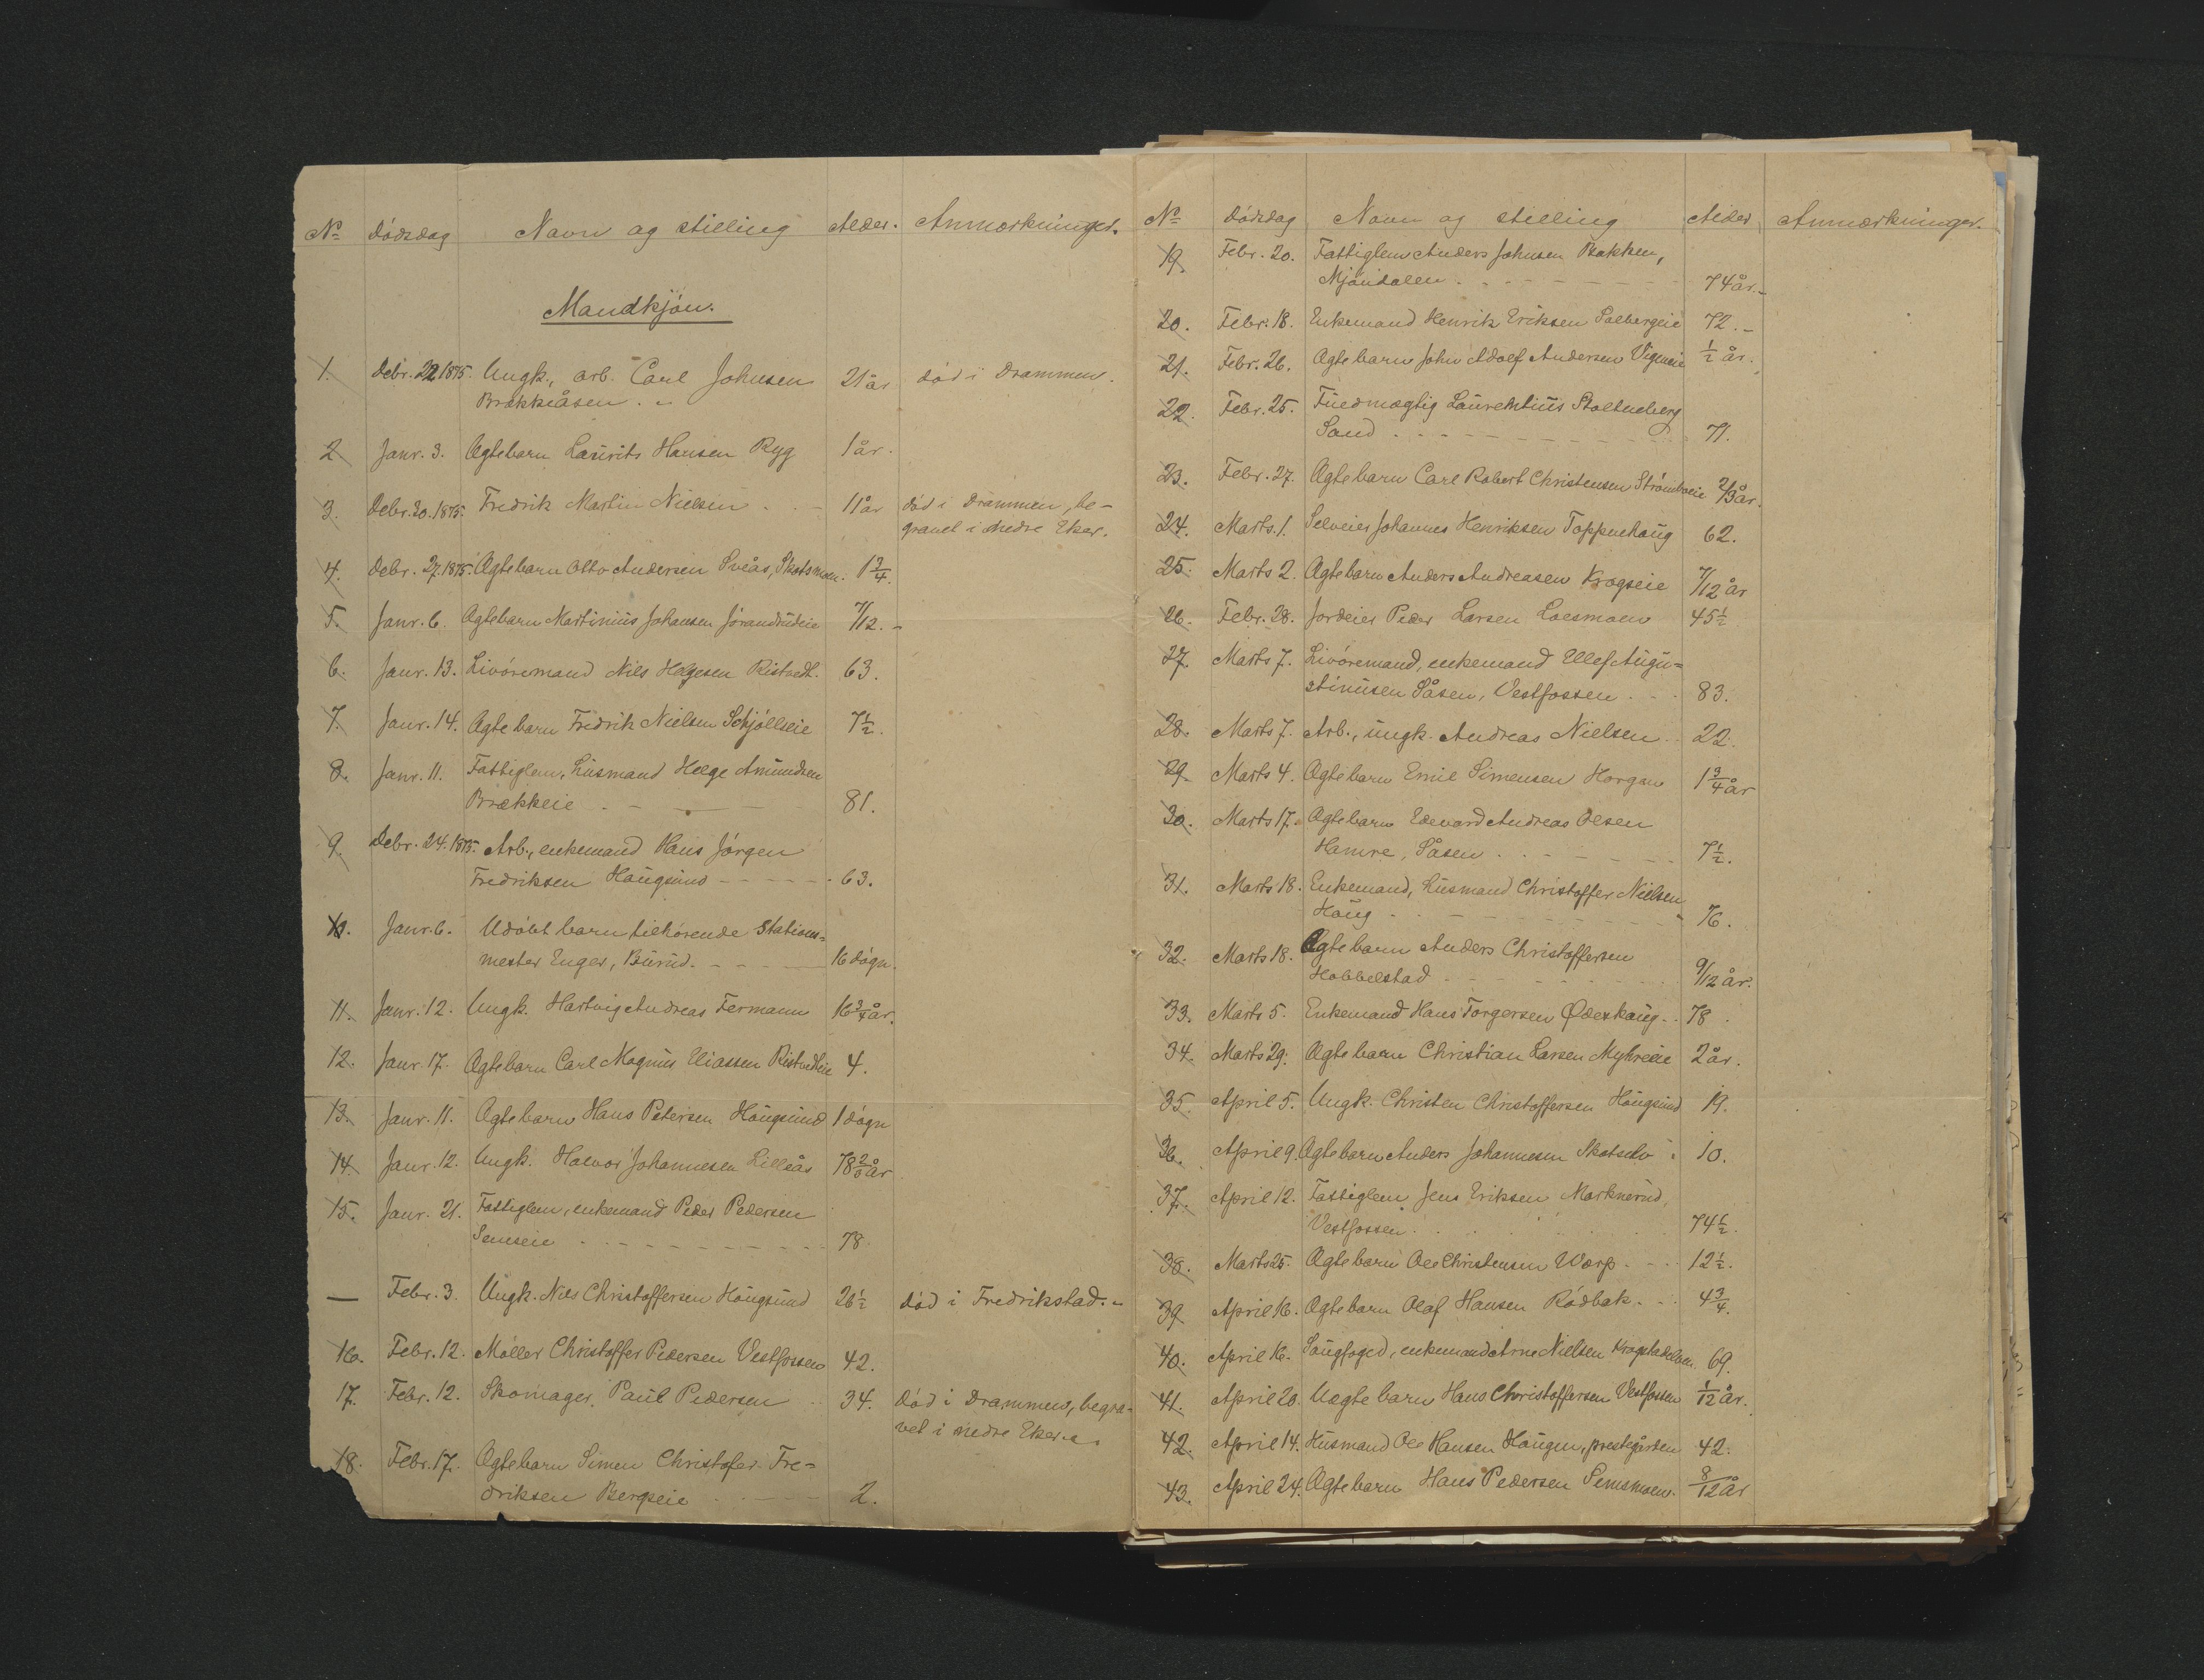 No Dödsdag Navn og stilling Alder. Anmærkninger.
Mandkjön.
1. Debr. 22 1875. Ungk., arb. Carl Johnsen 21 år död i Drammen.
Brækkeåsen. -
2 Janr. 3. Ægtebarn Laurits Hansen Ryg 1 år.
3. Debr. 20. 1875. Fredrik Martin Nielsen 11 år död i Drammen, be-
gravet i nedre Eker.
4. Debr. 27. 1875. Ægtebarn Otto Andersen Sveås, Skotsmoen. 1 3/4.
5. Janr. 6. Ægtebarn Martinius Johansen Jörandrudeie 7/12. -
6. Janr. 13. Livöremand Nils Helgesen Ristvedt. 63.
7. Janr. 14. Ægtebarn Fredrik Nielsen Schjölleie 7 1/2.
8. Janr. 11. Fattiglem, husmand Helge Amundsen
Brækkeie 81.
9. Debr. 24. 1875. Arb., enkemand Hans Jörgen
Fredriksen Hougsund 63.
10. Janr. 6. Udöbt barn tilhörende Stations=
mester Enger, Burud. 16 dögn.
11. Janr. 12. Ungk. Hartvig Andreas Fermann 16 3/4 år.
12. Janr. 17. Ægtebarn Carl Magnus Eliassen Ristvedteie 4.
13. Janr. 11. Ægtebarn Hans Petersen Hougsund 1 dögn
14. Janr. 12. Ungk. Halvor Johannesen Lilleås 78 år
15. Janr. 21. Fattiglem, enkemand Peder Pedersen
Semseie 78
— Febr. 3. Ungk. Nils Christoffersen Hougsund 26 1/2 död i Fredrikstad. -
16. Febr. 12. Möller Christoffer Pedersen Vestfossen 42.
17. Febr. 12. Skomager. Paul Pedersen 34. död i Drammen, begra-
vet i nedre Eker. -
18. Febr. 17. Ægtebarn Simen Christofer Fre=
driksen Bergseie 2.
No Dödsdag Navn og stilling Alder Anmærkninger.
19. Febr. 20. Fattiglem Anders Johnsen Bakken,
Mjöndalen 74 år. -
20. Febr. 18. Enkemand Henrik Eriksen Solbergeie 72. -
21. Febr. 26. Ægtebarn John Adolf Andersen Vigeneie 1/2 år.
22. Febr. 25. Fuldmægtig Laurentius Stoltenberg
Sand 71.
23. Febr. 27. Ægtebarn Carl Robert Christensen Strömboeie 2/3 år.
24. Marts. 1. Selveier Johannes Henriksen Toppenhaug 62.
25. Marts 2. Ægtebarn Anders Andreasen Krogseie 7/12 år
26. Febr. 28. Jordeier Peder Larsen Loesmoen 45 1/2
27. Marts 7. Livöremand, enkemand Ellef Augu=
stinusen Såsen, Vestfossen 83.
28. Marts 7. Arb., ungk. Andreas Nielsen 22.
29. Marts 4. Ægtebarn Emil Simensen Horgen 1 3/4 år
30. Marts 17. Ægtebarn Edevard Andreas Olsen
Hamre, Såsen 7 1/2.
31. Marts 18. Enkemand, husmand Christoffer Nielsen
Houg 76.
32. Marts 18. Ægtebarn Anders Christoffersen
Hobbelstad 9/12 år.
33. Marts 5. Enkemand Hans Torgersen Ödeskoug 78
34. Marts 29. Ægtebarn Christian Larsen Myhreeie 2 år.
35. April 5. Ungk. Christen Christoffersen Hougsund 19.
36. April 9. Ægtebarn Anders Johannesen Skotselv 10.
37. April 12. Fattiglem Jens Eriksen Markerud,
Vestfossen 74 1/2.
38. Marts 25. Ægtebarn Ole Christensen Varp 12 1/2.
39 April 16. Ægtebarn Olaf Hansen Rödbak 4 3/4.
40. April 16. Saugfoged, enkemand Arne Nielsen Krogstadelven 69.
41. April 20. Uægte barn Hans Christoffersen Vestfossen 1/12 år.
42. April 14. Husmand Ole Hansen Haugen, prestegården 42.
43. April 24. Ægtebarn Hans Pedersen Semsmoen. 8/12 år